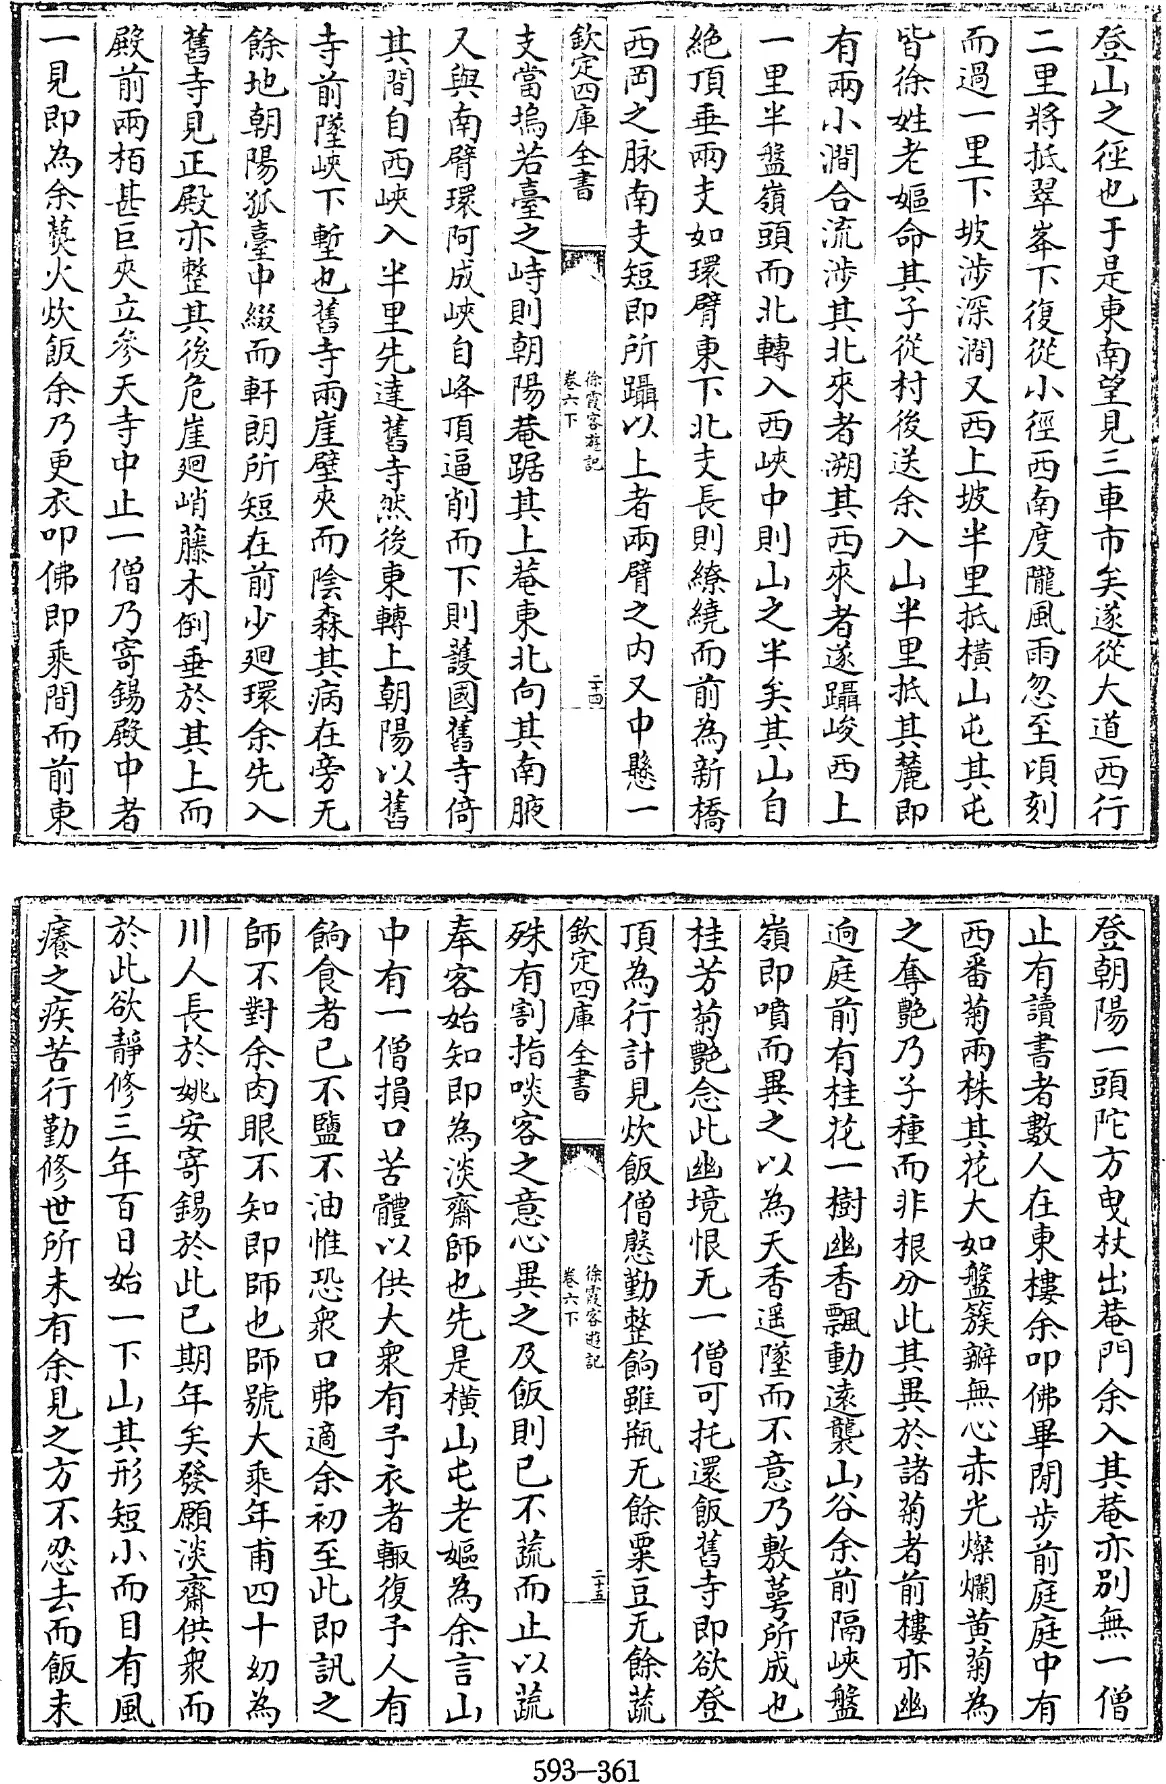 登山之徑也于是東南望見三車市矣遂從大道西行
二里將抵翠峯下復從小徑西南度隴風雨忽至頃刻
而過一里下坡涉深澗又西上坡半里抵橫山屯其屯
皆徐姓老嫗命其子從村後送余入山半里抵其麓即
有兩小澗合流涉其北來者溯其西來者遂躡峻西上
一里半盤嶺頭而北轉入西峽中則山之半矣其山自
絶頂垂兩支如環臂東下北支長則繚繞而前為新橋
西岡之脉南支短即所躡以上者兩臂之内又中懸一
欽定四庫全書
徐霞客遊記
卷六下
二十四
支當塢若臺之峙則朝陽菴踞其上菴東北向其南腋
又與南臂環阿成峽自峰頂逼削而下則護國舊寺倚
其間自西峽入半里先達舊寺然後東轉上朝陽以舊
寺前墜峽下塹也舊寺兩崖壁夾而陰森其病在旁无
餘地朝陽孤臺中綴而軒朗所短在前少廻環余先入
舊寺見正殿亦整其後危崖廻峭藤木倒垂於其上而
殿前兩栢甚巨夾立參天寺中止一僧乃寄錫殿中者
一見即為余爇火炊飯余乃更衣叩佛即乘間而前東
登朝陽一頭陀方曳杖出菴門余入其菴亦别無一僧
止有讀書者數人在東樓余叩佛畢閒步前庭庭中有
西番菊兩株其花大如盤簇瓣無心赤光燦爛黄菊為
之奪艷乃子種而非根分此其異於諸菊者前樓亦幽
迥庭前有桂花一樹幽香飄動遠襲山谷余前隔峽盤
嶺即噴而異之以為天香遥墜而不意乃敷萼所成也
桂芳菊艷念此幽境恨无一僧可托還飯舊寺即欲登
頂為行計見炊飯僧慇勤整餉雖瓶无餘粟豆无餘蔬
欽定四庫全書
徐霞客遊記
卷六下
二十五
殊有割指啖客之意心異之及飯則已不蔬而止以蔬
奉客始知即為淡齋師也先是橫山屯老嫗為余言山
中有一僧損口苦體以供大衆有予衣者輙復予人有
餉食者已不鹽不油惟恐衆口弗適余初至此即訊之
師不對余肉眼不知即師也師號大乘年甫四十幼為
川人長於姚安寄錫於此已期年矣發願淡齋供衆而
於此欲靜修三年百日始一下山其形短小而目有風
癢之疾苦行勤修世所未有余見之方不忍去而飯未
593–361